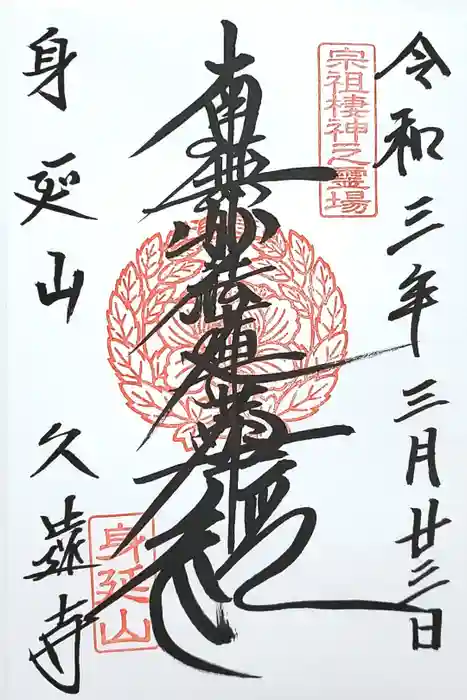 令和三年三月廿三日
宗祖棲神之霊場
南無妙法蓮華経
身延山 久遠寺
身延山